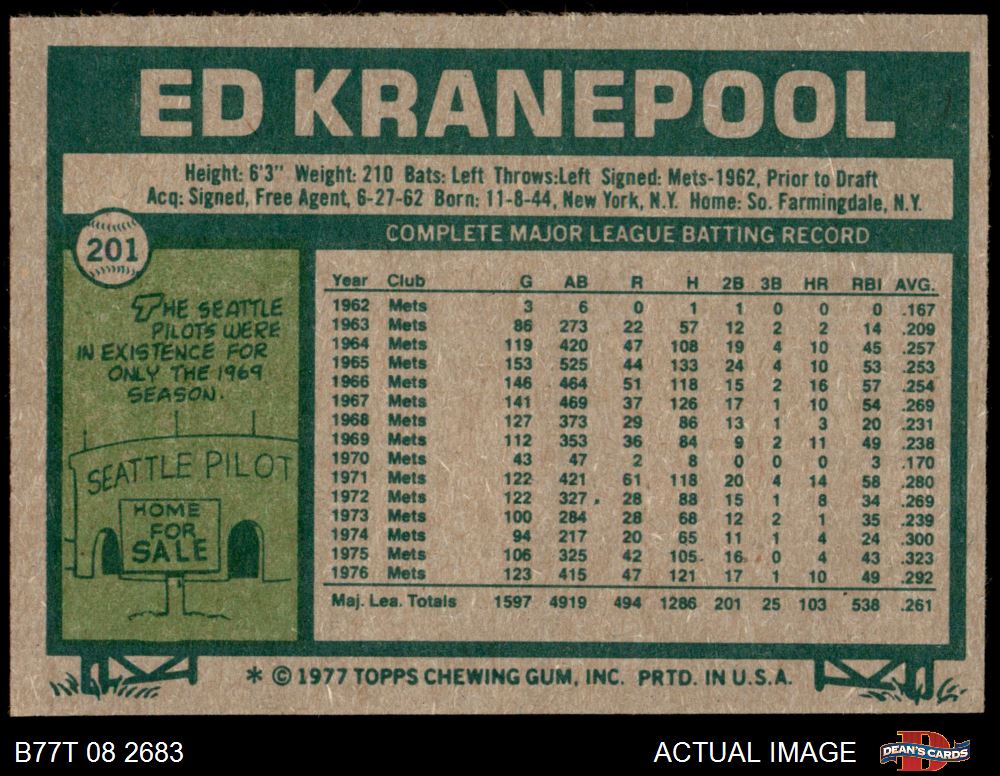 ED KRANEPOOL
Height: 6'3" Weight: 210 Bats: Left Throws:Left Signed: Mets-1962, Prior to Draft
Acq: Signed, Free Agent, 6-27-62 Born: 11-8-44, New York, N.Y. Home: So. Farmingdale, N.Y.
201
COMPLETE MAJOR LEAGUE BATTING RECORD
THE SEATTLE
PILOTS WERE
IN EXISTENCE FOR
ONLY THE 1969
SEASON.
SEATTLE PILOT
HOME
FOR
SALE
Year Club G AB R H 2B 3B HR RBI AVG.
1962 Mets 3 6 0 1 1 0 0 0 .167
1963 Mets 86 273 22 57 12 2 2 14 .209
1964 Mets 119 420 47 108 19 4 10 45 .257
1965 Mets 153 525 44 133 24 4 10 53 .253
1966 Mets 146 464 51 118 15 2 16 57 .254
1967 Mets 141 469 37 126 17 1 10 54 .269
1968 Mets 127 373 29 86 13 1 3 20 .231
1969 Mets 112 353 36 84 9 2 11 49 .238
1970 Mets 43 47 2 8 0 0 0 3 .170
1971 Mets 122 421 61 118 20 4 14 58 .280
1972 Mets 122 327 28 88 15 1 8 34 .269
1973 Mets 100 284 28 68 12 2 1 35 .239
1974 Mets 94 217 20 65 11 1 4 24 .300
1975 Mets 106 325 42 105 16 0 4 43 .323
1976 Mets 123 415 47 121 17 1 10 49 .292
Maj. Lea. Totals 1597 4919 494 1286 201 25 103 538 .261
* © 1977 TOPPS CHEWING GUM, INC. PRTD. IN U.S.A.
B77T 08 2683
ACTUAL IMAGE
DEAN'S CARDS